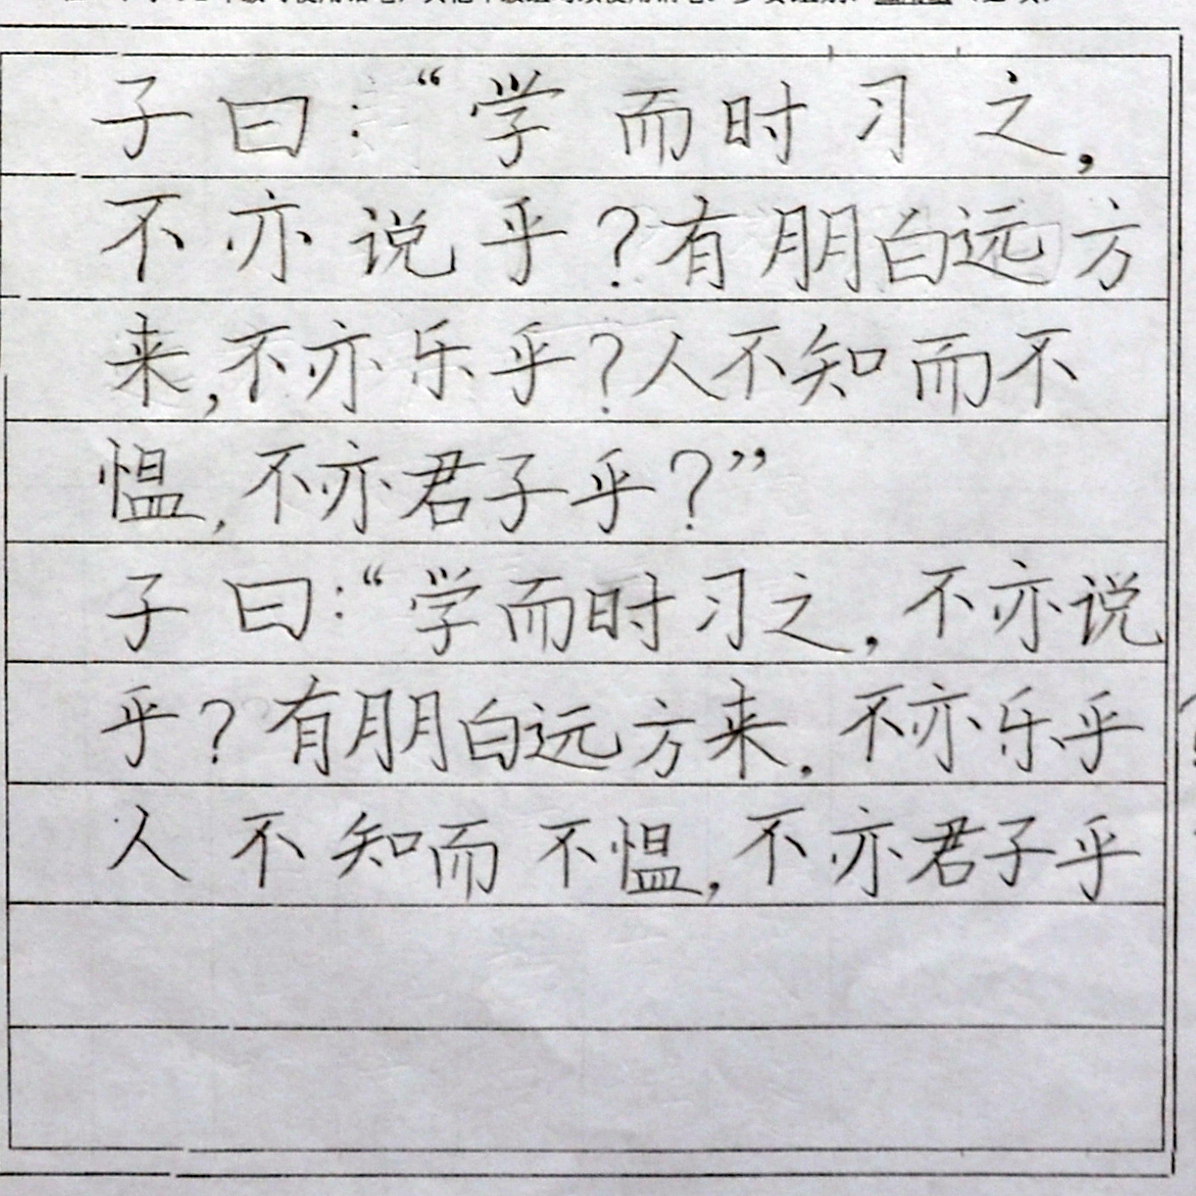 子曰：“学而时习之，
不亦说乎？有朋自远方
来，不亦乐乎？人不知而不
愠，不亦君子乎？”
子曰：“学而时习之，不亦说
乎？有朋自远方来，不亦乐乎
人不知而不愠，不亦君子乎